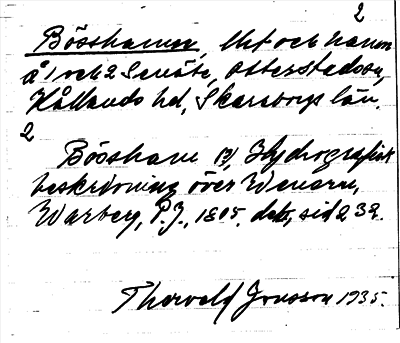 2
Bösshamn, Ut och hamn
å 1 och 2 Senäte, Otterstads sn,
Kållands hd, Skaraborgs län.
2
Bösshamn Hydrografisk
beskrivning över Wenern,
Warberg, P.J., 1805, sid 232.
Thorvald Jonsson 1935.